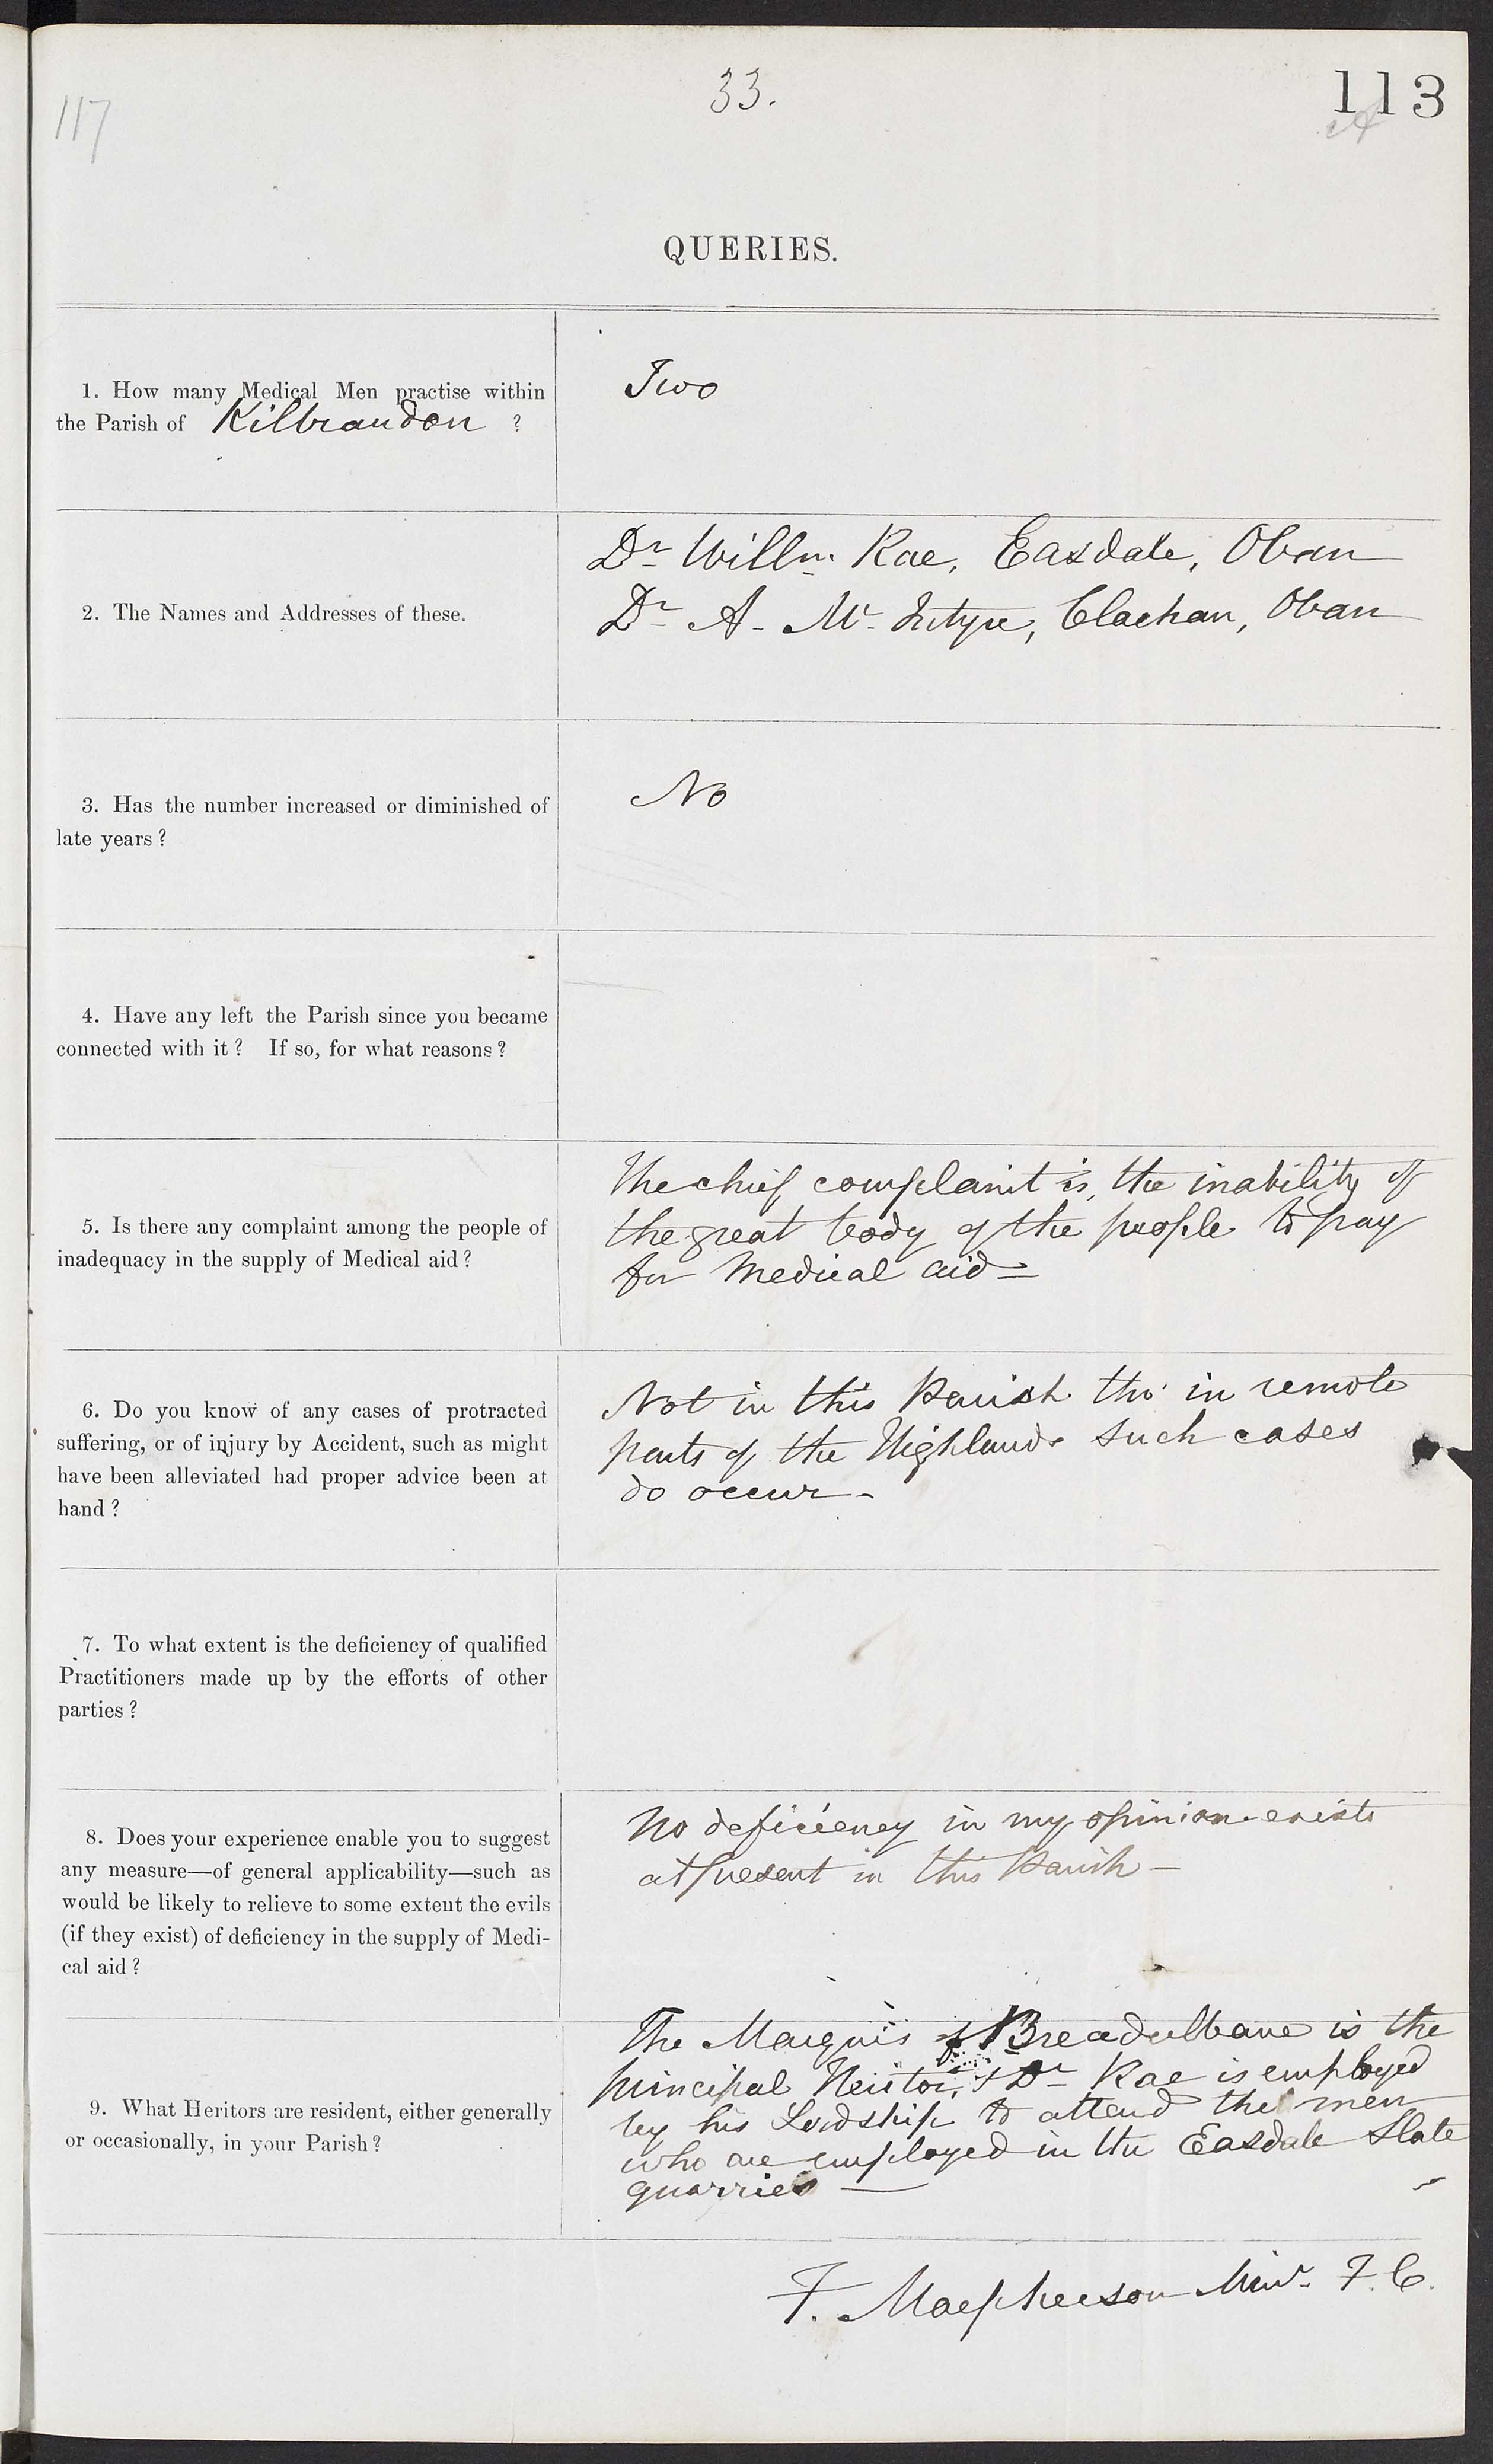 33.
113
117
QUERIES.
1. How many Medical Men practise within
the Parish of Kilbrandon ?
Two
2. The Names and Addresses of these.
Dr Willm. Rae, Easdale, Oban
Dr A. Mc.Intyre, Clachan, Oban
3. Has the number increased or diminished of
late years?
No
4. Have any left the Parish since you became
connected with it? If so, for what reasons?
5. Is there any complaint among the people of
inadequacy in the supply of Medical aid?
The chief complaint is, the inability of
the great body of the people to pay
for Medical aid —
6. Do you know of any cases of protracted
suffering, or of injury by Accident, such as might
have been alleviated had proper advice been at
hand?
Not in this Parish tho' in remote
parts of the Highlands such cases
do occur -
7. To what extent is the deficiency of qualified
Practitioners made up by the efforts of other
parties?
8. Does your experience enable you to suggest
any measure—of general applicability—such as
would be likely to relieve to some extent the evils
(if they exist) of deficiency in the supply of Medi-
cal aid?
No deficiency in my opinion exists
at present in this Parish —
9. What Heritors are resident, either generally
or occasionally, in your Parish?
The Marquis of Breadalbane is the
principal Heritor, & Dr Rae is employed
by his Lordship to attend the men
who are employed in the Easdale Slate
quarries —
F. Macpherson Minr. F. C.